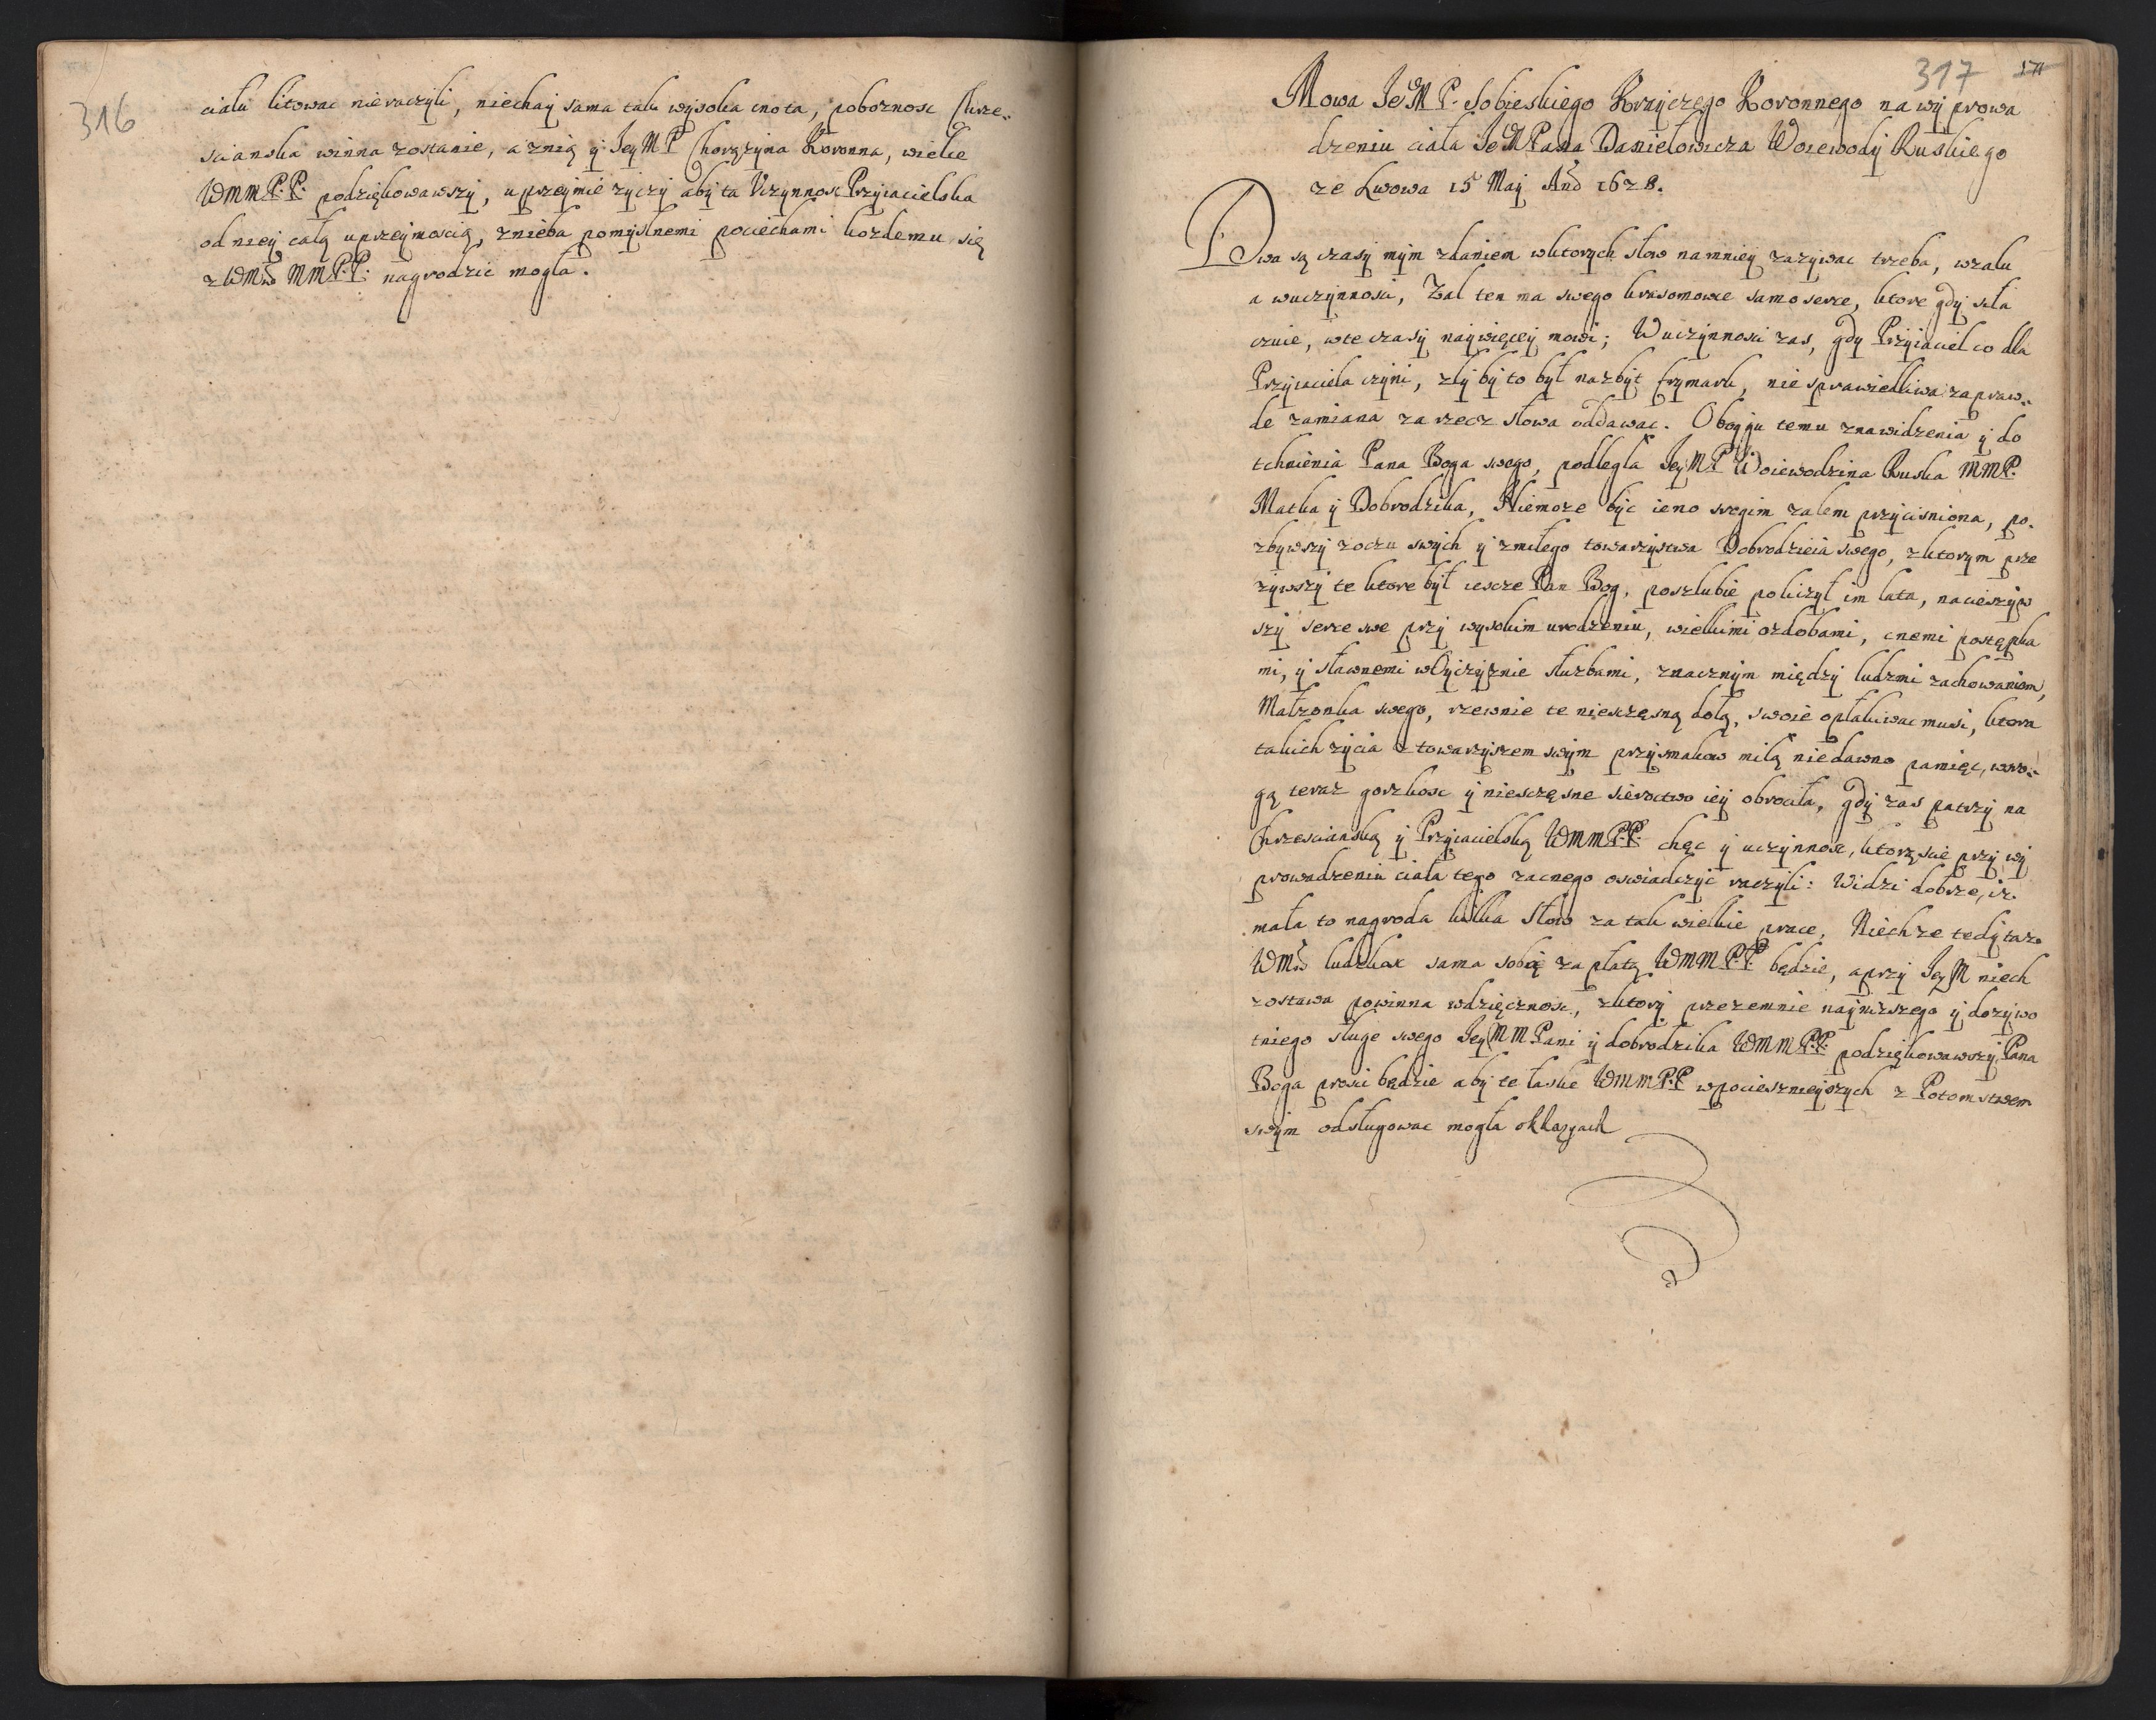 316
ciału litowac nieraczyli, niechay sama tak wysoka cnota, poboznosc Chrze-
scianska winna zostanie, a znią ÿ JeyMP Chorązyna Koronna, wielce
WMMP.P. podziękowawszÿ, uprzeÿmie zÿczÿ abÿ ta Uczynnosc Przÿiacielska
od nieÿ całą uprzeÿmoscią, znieba pomÿslnemi pociechami kozdemu się
z WMw MMP.P. nagrodzic mogła.
317 171
Mowa JeMP. Sobieskiego Krayczego Koronnego na wÿprowa
dzeniu ciała JeMPana Daniełowicza Woiewodÿ Ruskiego
ze Lwowa 15 Maÿ And 1628.
Dwa są czasÿ mÿm zdaniem wktorych słow namnieÿ zazÿwac trzeba, wzalu
a wuczÿnnosci, Zal ten ma swego krasomowce samo serce, ktore gdÿ scła
cznie, wte czasÿ naÿwięceÿ mowi; Wuczÿnnosci zas, gdy Przÿiaciel co dla
Przÿiaciela czÿni, złÿ bÿ to bÿł nazbÿt frymark, nie sprawiedliwa zapraw-
de zamiana za rzecz słowa oddawac. Oboygu temu znawidzenia ÿ do
tchnienia Pana Boga swego, podległa JeÿMP Woiewodzina Ruska MMP.
Matka ÿ Dobrodzika, Niemoze bÿc ieno srogim zalem przÿcisniona, po-
zbÿwszÿ zoczu swÿch ÿ zmiłego towarzÿstwa Dobrodzieia swego, zktorym prze
zÿwszÿ te ktore bÿł iescze Pan Bog, poszlubie policzÿł im lata, nacieszÿw
szÿ serce swe przÿ wysokim urodzeniu, wielkimi ozdobami, cnemi postępka
mi, ÿ sławnemi wOÿczÿznie słuzbami, znacznÿm międzÿ ludzmi zachowaniem,
Małzonka swego, rzewnie te niesczęsną dolą, swoie opłakiwac musi, ktora
takich zÿcia z towarzÿszem swÿm przÿsmakow miłą niedawno pamięc, wsro-
gą teraz gorzkosc ÿ niesczęsne sieroctwo ieÿ obrociła, gdÿ zas patrzÿ na
Chrzescianską ÿ Przÿiacielską WMMP.P. chęc ÿ uczÿnnosc, ktorąscie przÿ wÿ
prowadzeniu ciała tego zacnego oswiadczÿc raczÿli: Widzi dobrze, iz
mała to nagroda kilka Słow za tak wielkie prace, Niechze tedÿ taz
WMw ludzkosc sama sobie zapłatą WMMP.P. będzie, a przÿ JeyM niech
zostawa powinna wdzięcznosc, zktorÿ przezemnie naÿnizszego ÿ dozÿwo
tniego sługe swego JeyMMPani ÿ dobrodzika WMMP.P. podziękowawszÿ, Pana
Boga prosic będzie abÿ te łaske WMMP.P. wpociesznieÿszych z Potomstwem
swÿm odsługowac mogła okkazÿach